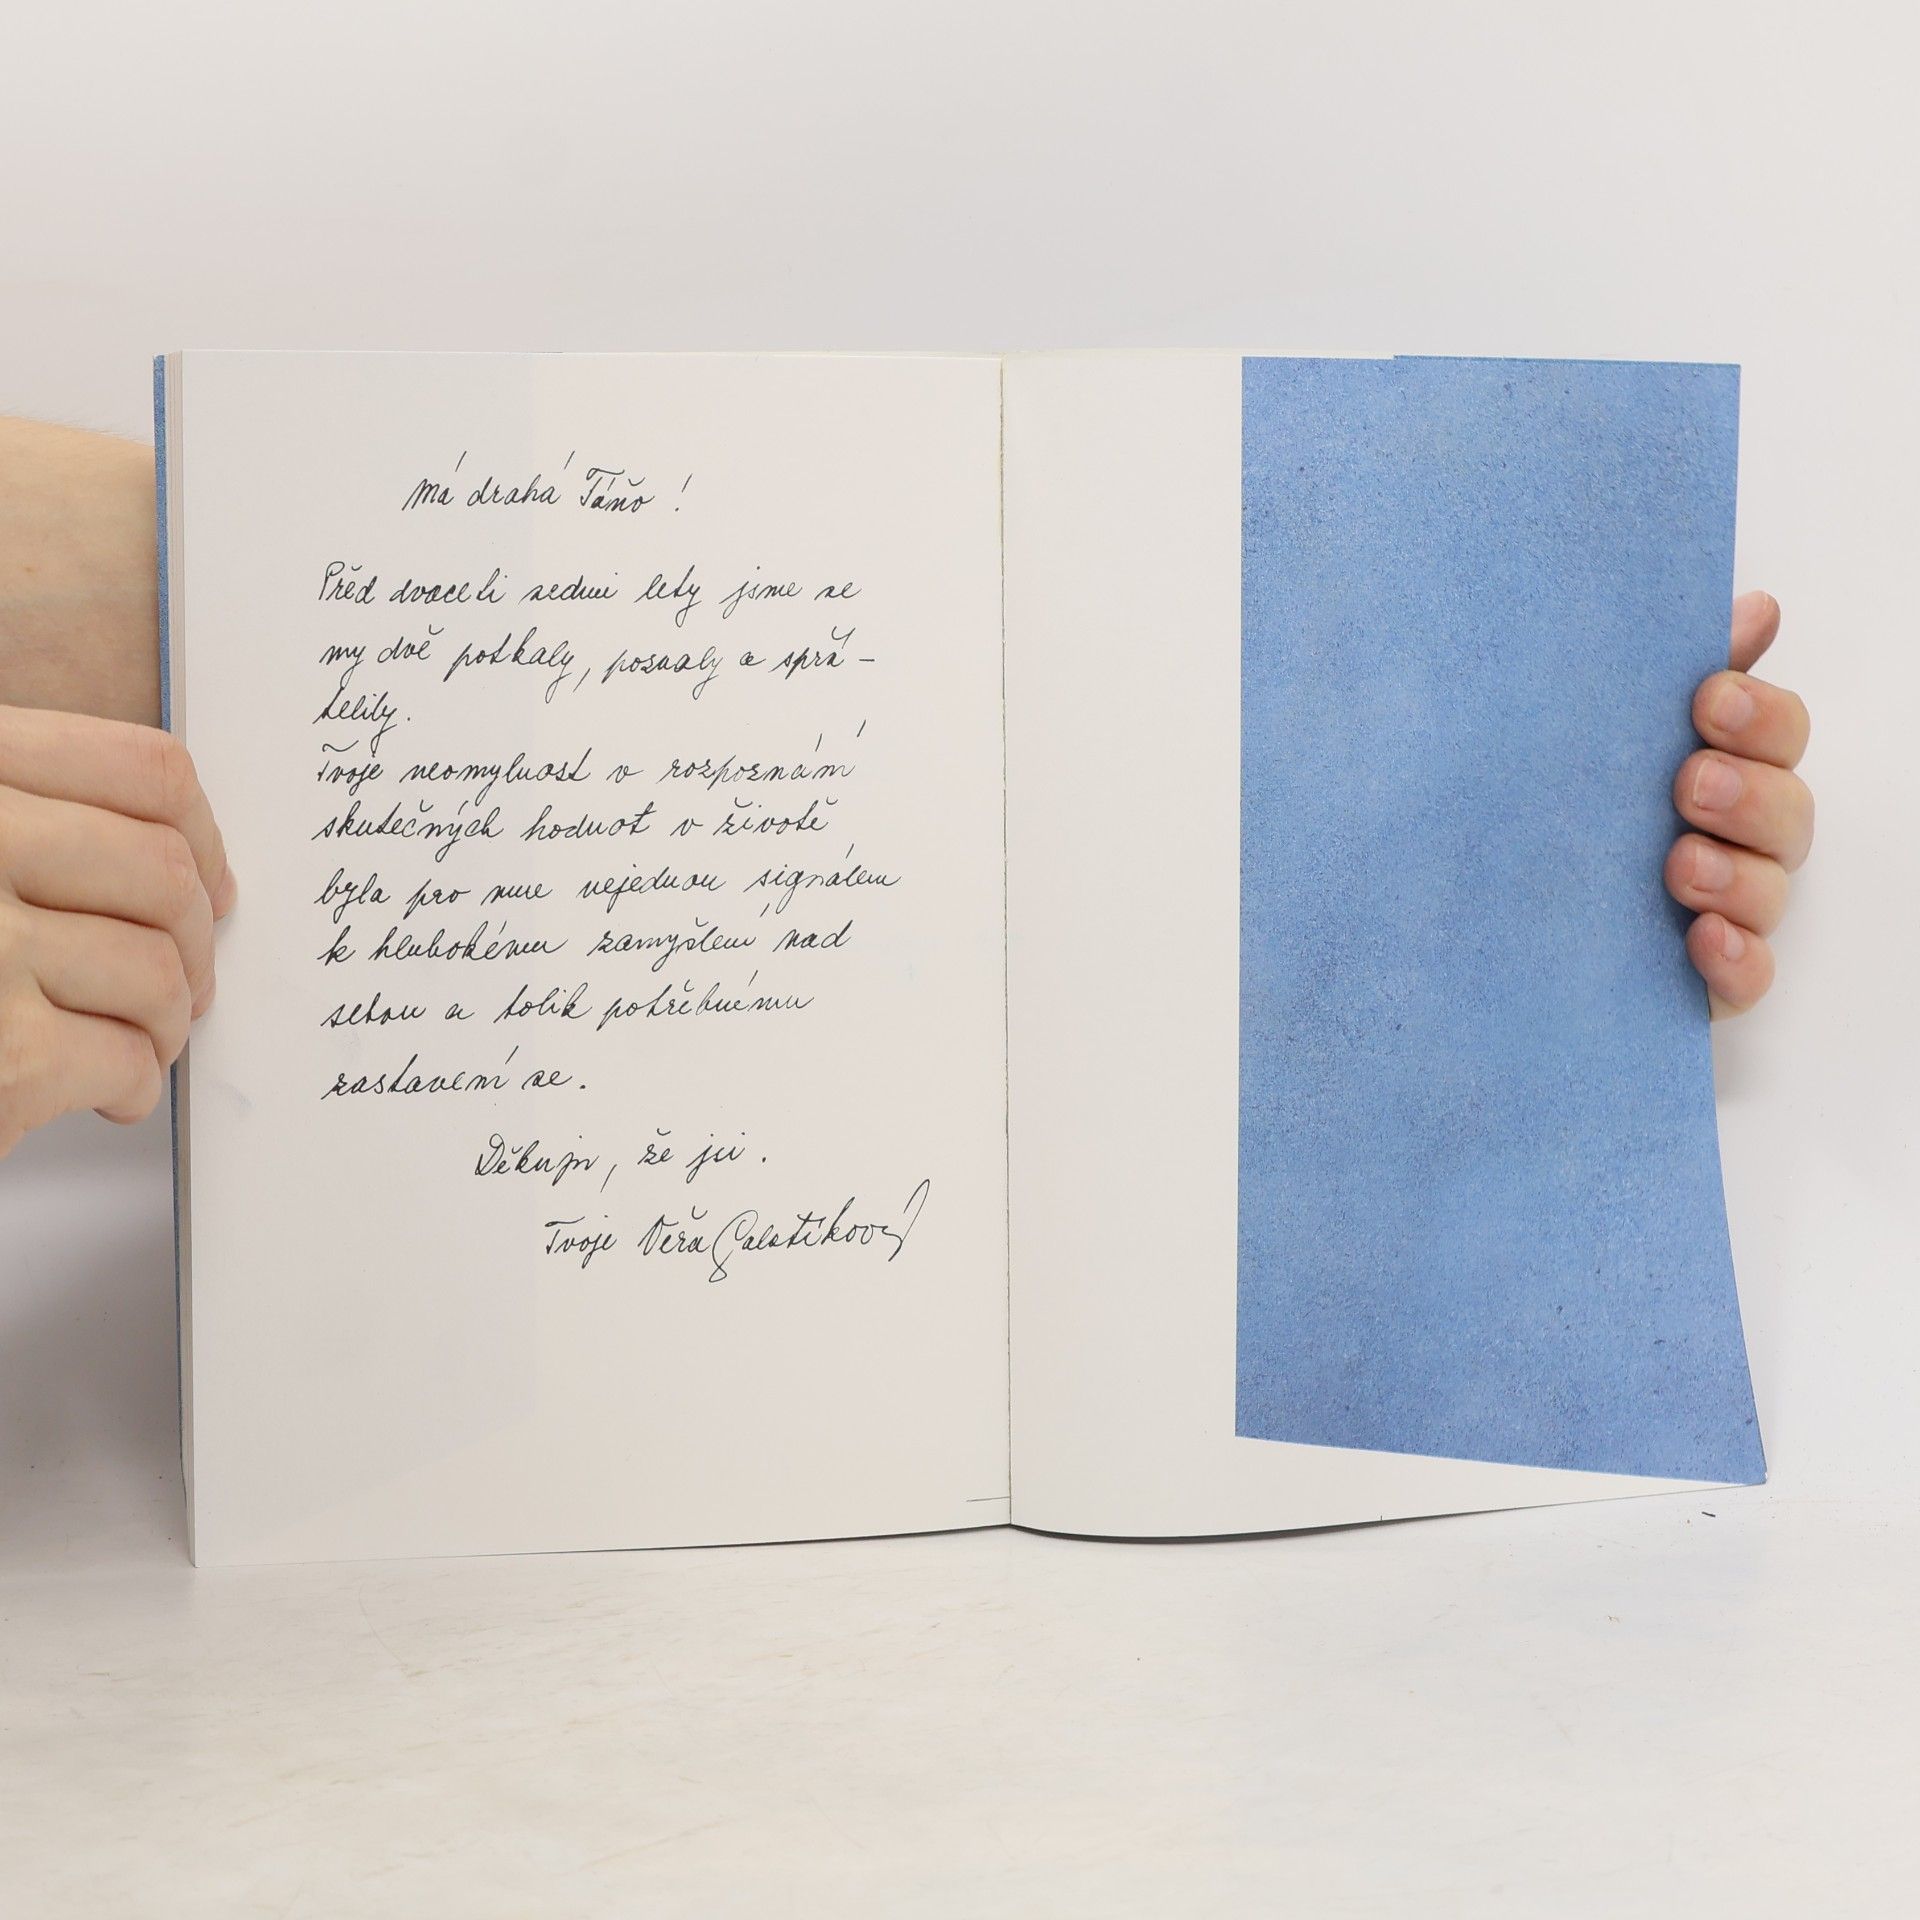 Má drahá Táňo !
Před dvaceti sedmi lety jsme se
my dvě potkaly, poznaly a spřá-
telily.
Tvoje neomylnost v rozpoznání
skutečných hodnot v životě
byla pro mne nejednou signálem
k hlubokému zamyšlení nad
sebou a tolik potřebnému
zastavení se.
Děkuji, že jsi.
Tvoje Věra Galatíková